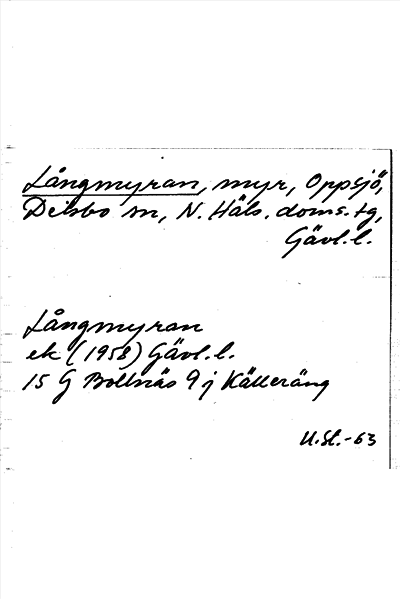 Långmyran, myr, Oppsjö,
Delsbo sn, N. Häls. doms.tg,
Gävl.l.
Långmyran
ek (1958) Gävl.l.
15 G Bollnäs 9 j Källeräng
U.St.-63